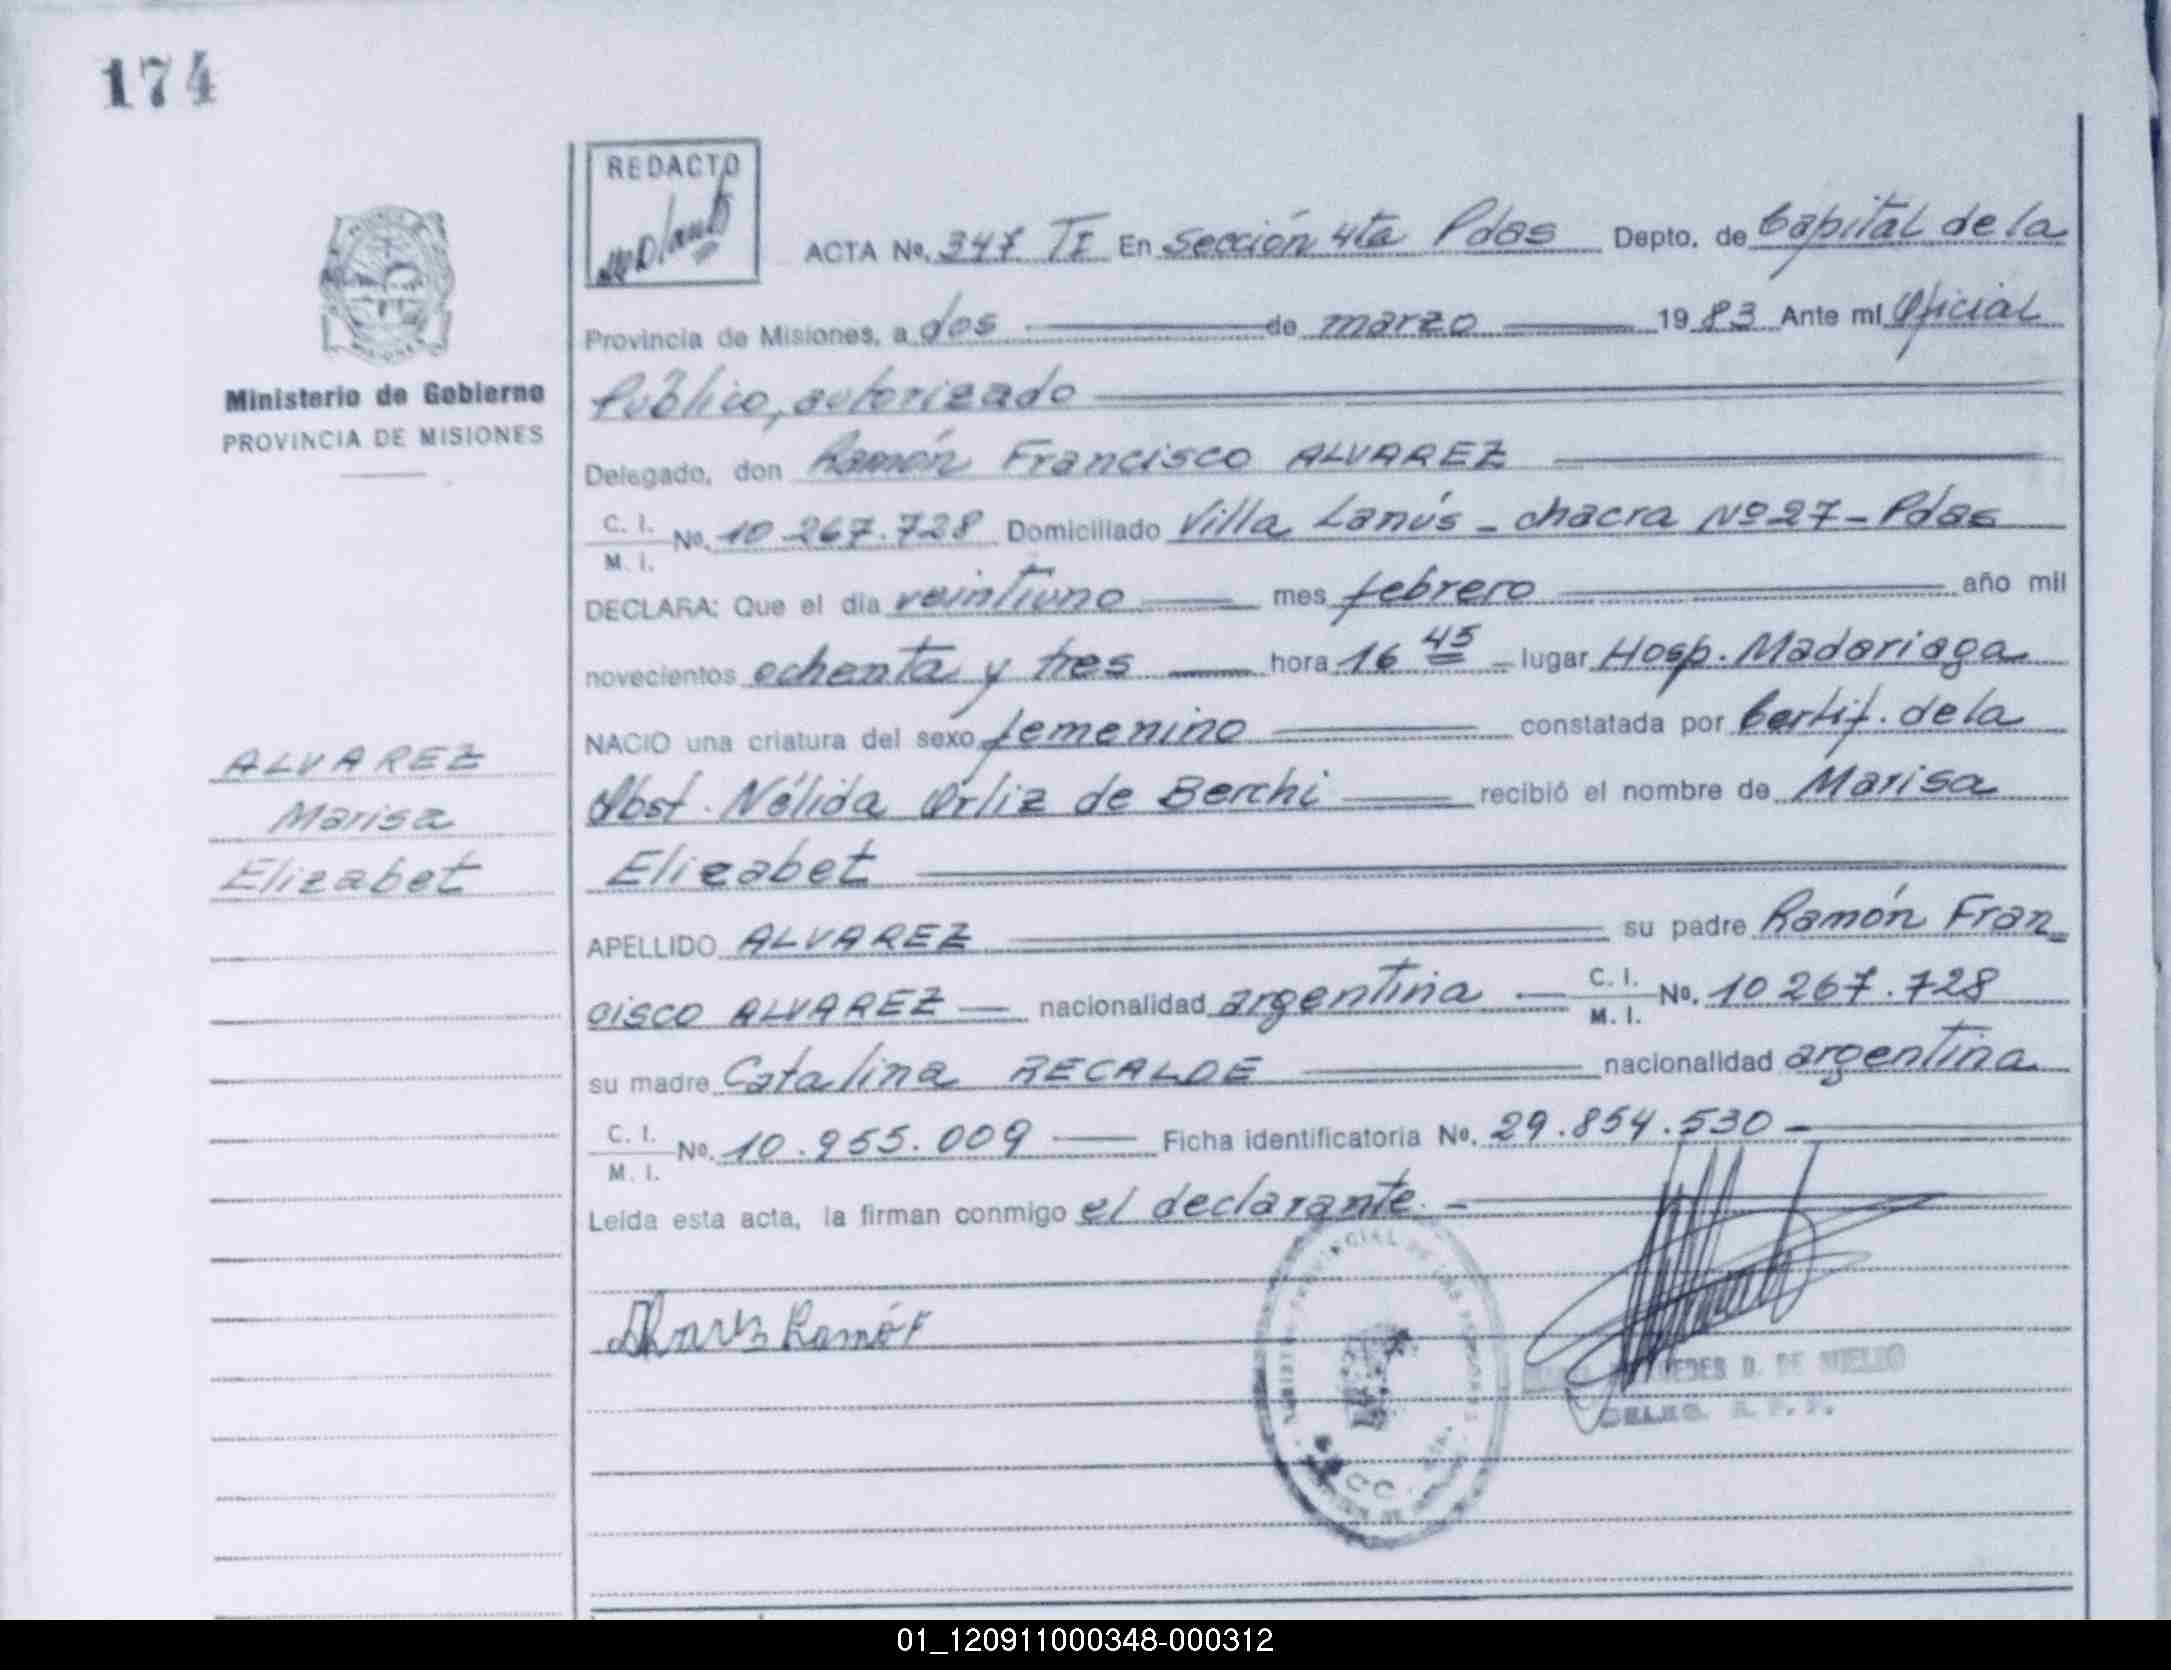 174
REDACTO
ACTA No. 347 TI En Sección 4ta Pdas Depto. de Capital de la
Provincia de Misiones, a dos de marzo 1983 Ante mí Oficial
Público, autorizado
Delegado, don Ramón Francisco ALVAREZ
C. I.
M. I. No. 10 267.728 Domiciliado Villa Lanús - chacra Nº 27 - Pdas
DECLARA: Que el día veintiuno mes febrero año mil
novecientos ochenta y tres hora 16 45 lugar Hosp. Madariaga
NACIO una criatura del sexo femenino constatada por Certif. de la
Obst. Nélida Ortiz de Berchi recibió el nombre de Marisa
Elizabet
APELLIDO ALVAREZ su padre Ramón Fran_
cisco ALVAREZ nacionalidad argentina C. I.
M. I. No. 10 267.728
su madre Catalina RECALDE nacionalidad argentina
C. I.
M. I. No. 10.955.009 Ficha identificatoria No. 29.854.530
Leída esta acta, la firman conmigo el declarante.
Alvarez Ramón
D. DE
DELEG.
Ministerio de Gobierno
PROVINCIA DE MISIONES
ALVAREZ
Marisa
Elizabet
01_120911000348-000312